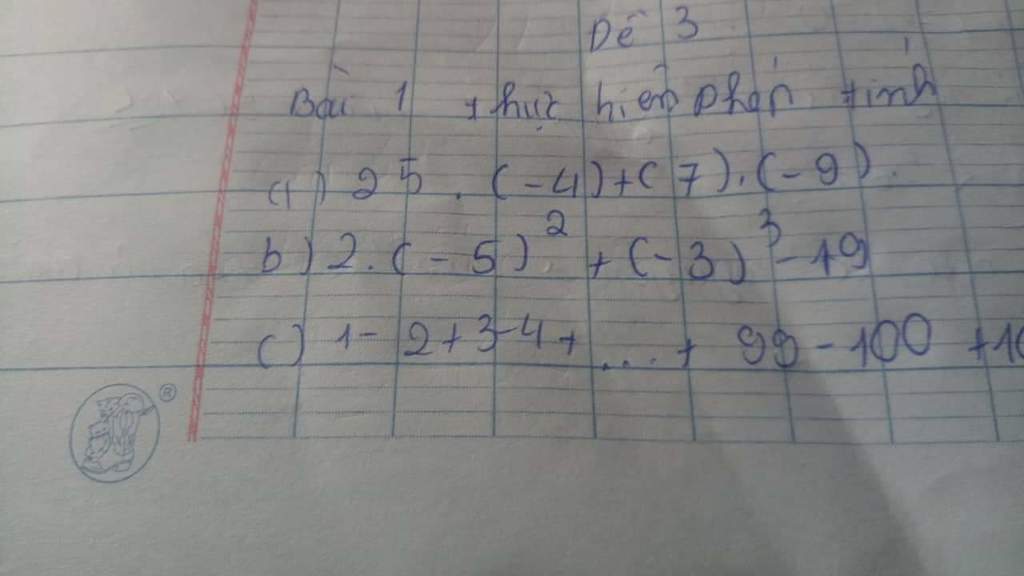 Đề 3
Bài 1 thực hiện phép tính
a) 25 . (-4)+(7).(-9).
b) 2.(-5)² + (-3)³ - 19
c) 1-2+3-4+....+ 99-100 +10
®